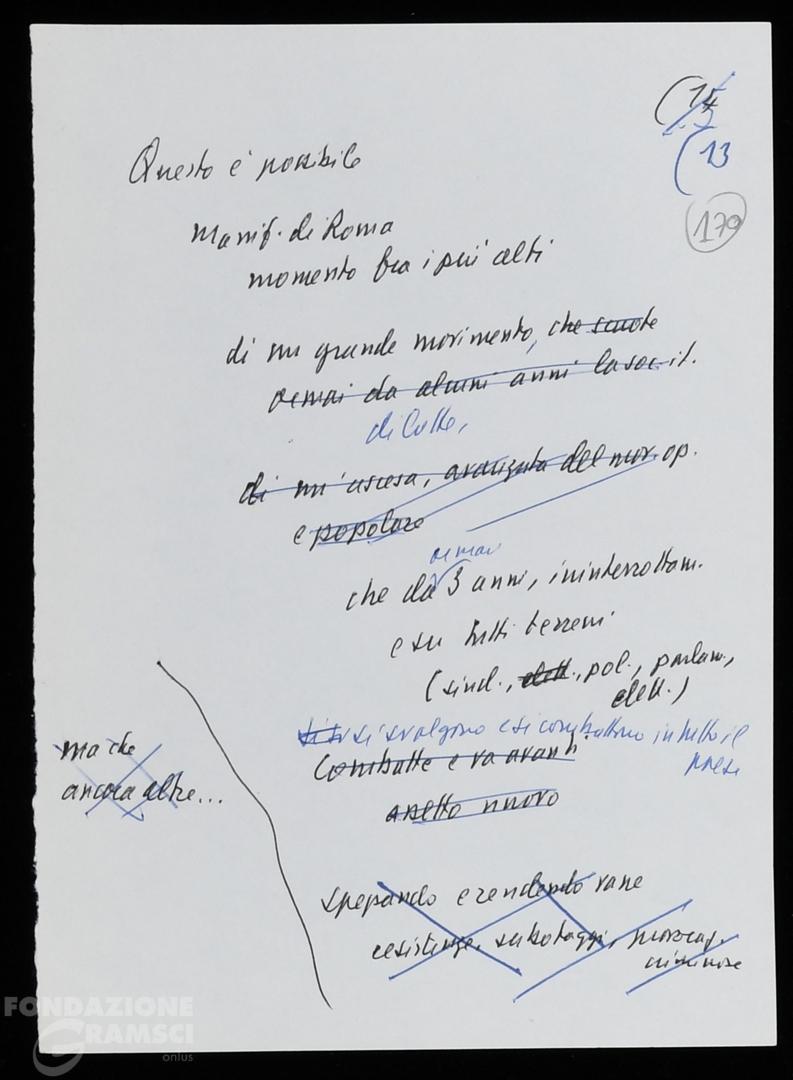 (14
(13
170
Questo è possibile
Manif. di Roma
momento fra i più alti
di un grande movimento, che scuote
ormai da alcuni anni la soc. it.
di lotte,
di un'ascesa, avanzata del mov. op.
e popolare
ormai
che da 3 anni, ininterrottam.
e su tutti terreni
(sind., elett., pol., parlam.,
elett.)
si svolgono e si combattono in tutto il
paese
Combatte e va avanti
assetto nuovo
ma che
ancora altre...
spezzando e rendendo vane
resistenze, sabotaggi, provocaz.
FONDAZIONE
GRAMSCI
onlus